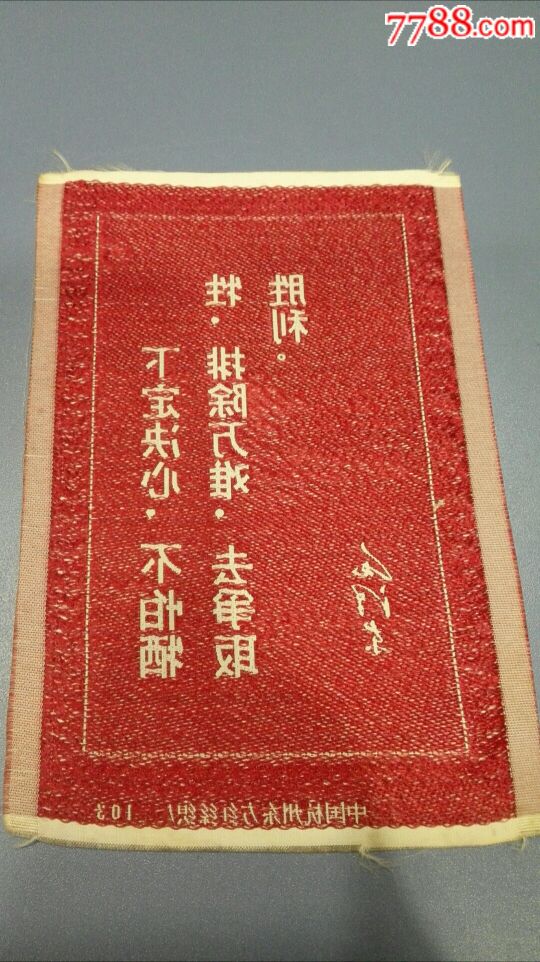 7788.com
下定决心，不怕牺
牲，排除万难，去争取
胜利。
毛泽东
中国杭州东方红丝织厂 103